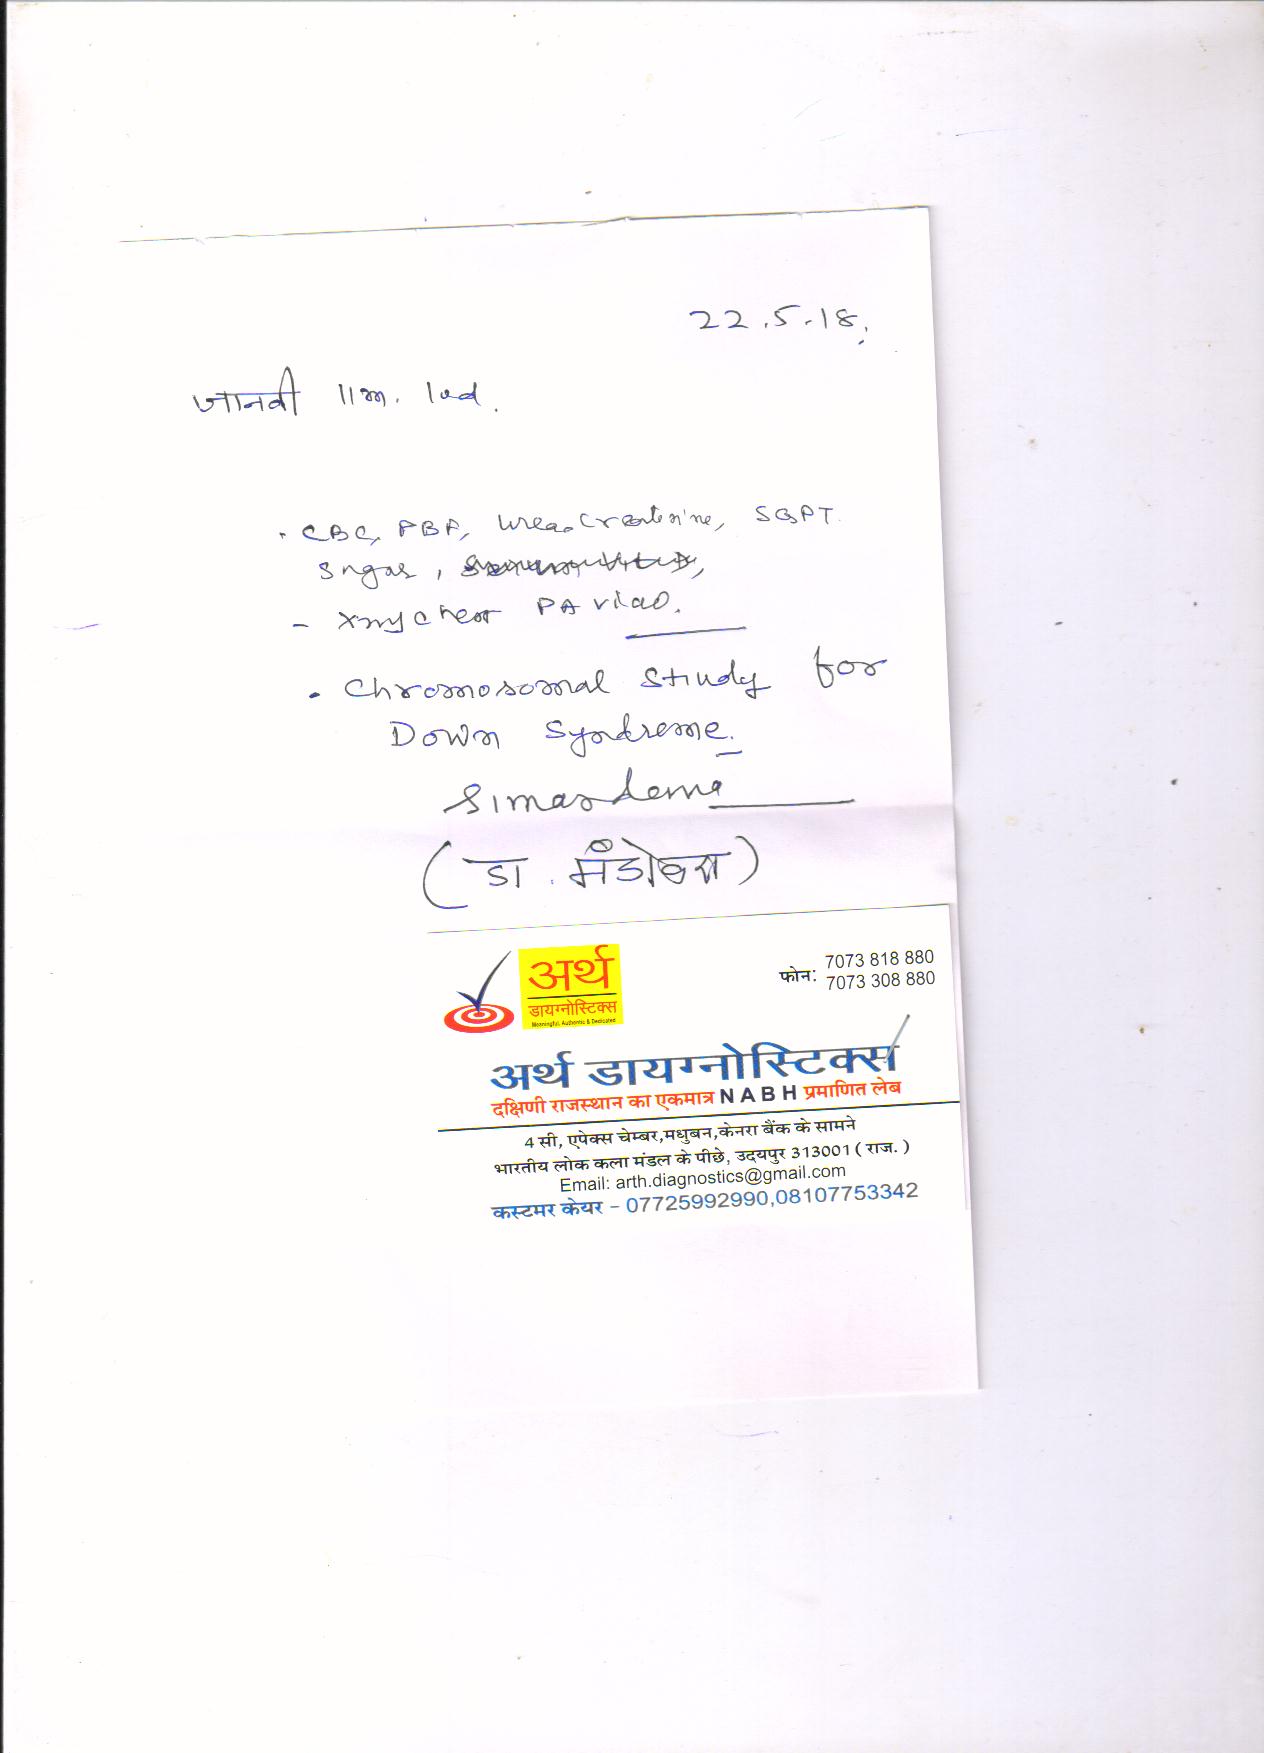 22.5.18.
जानवी 11m.
CBC, PBF, Urea Createnine, SGPT.
Sugar,
- Xray Chest PA view.
Chromosomal Study for
Down Syndreme.
(डा.
अर्थ
डायग्नोस्टिक्स
Meaningful, Authentic & Dedicated
फोन: 7073 818 880
7073 308 880
अर्थ डायग्नोस्टिक्स
दक्षिणी राजस्थान का एकमात्र NABH प्रमाणित लेब
4 सी, एपेक्स चेम्बर,मधुबन,केनरा बैंक के सामने
भारतीय लोक कला मंडल के पीछे, उदयपुर 313001 ( राज. )
Email: arth.diagnostics@gmail.com
कस्टमर केयर - 07725992990,08107753342